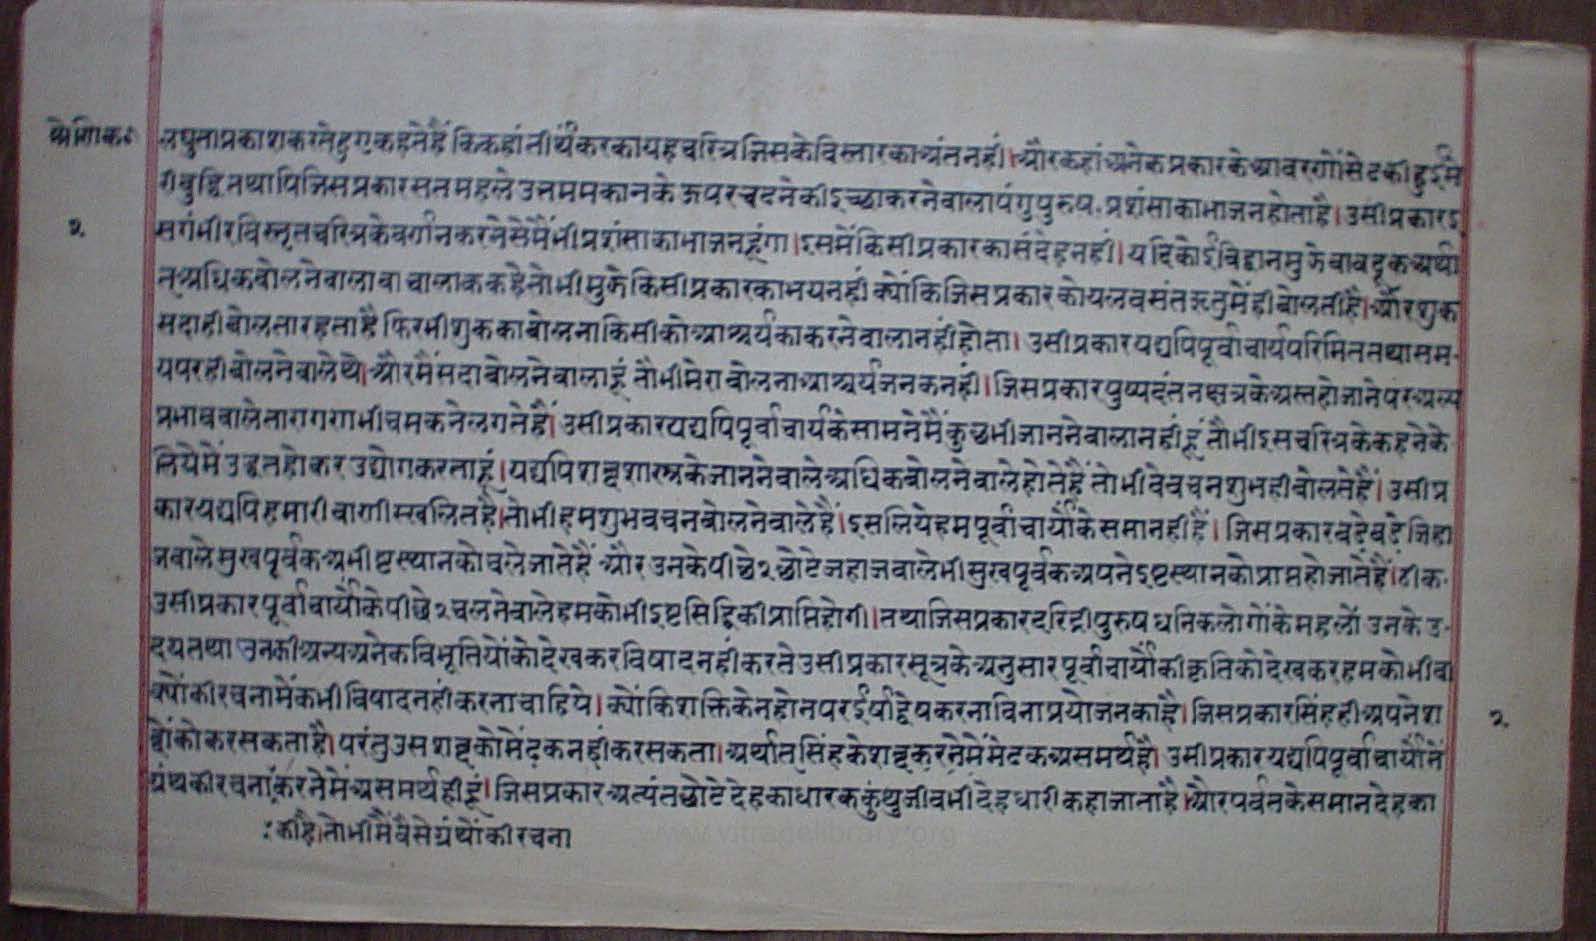 श्रेणिकः
लघुता प्रकाश करते हुए कहते हैं कि कहां तीर्थंकर का यह चरित्र जिसके विस्तार का अंत नहीं। और कहां अनेक प्रकार के आवरणों से ढकी हुई मे
री बुद्धि तथापि जिस प्रकार सतमहले उत्तम मकान के ऊपर चढने की इच्छा करने वाला पंगु पुरुष. प्रशंसा का भाजन होता है। उसी प्रकार इ
२
स गंभीर विस्तृत चरित्र के वर्णन करने से मैं भी प्रशंसा का भाजन हूंगा। इसमें किसी प्रकार का संदेह नहीं। यदि कोई विद्वान मुझे वावदूक अर्था
त् अधिक बोलने वाला वाचालाक कहे तो भी मुझे किसी प्रकार का भय नहीं क्योंकि जिस प्रकार कोयल वसंत ऋतु में ही बोलती है। और शुक
सदा ही बोलता रहता है फिर भी शुक का बोलना किसी को आश्चर्य का करने वाला नहीं होता। उसी प्रकार यद्यपि पूर्वाचार्य परिमित तथा सम-
य पर ही बोलने वाले थे। और मैं सदा बोलने वाला हूं तौ भी मेरा बोलना आश्चर्य जनक नहीं। जिस प्रकार पुष्पदंत नक्षत्र के अस्त हो जाने पर अल्प
प्रभाव वाले तारागण भी चमकने लगते हैं। उसी प्रकार यद्यपि पूर्वाचार्य के सामने मैं कुछ भी जानने वाला नहीं हूं तौ भी इस चरित्र के कहने के
लिये मैं उद्धत होकर उद्योग करता हूं। यद्यपि शब्द शास्त्र के जानने वाले अधिक बोलने वाले होते हैं तो भी वे वचन शुभ ही बोलते हैं। उसी प्र
कार यद्यपि हमारी वाणी स्खलित है। तो भी हम शुभ वचन बोलने वाले हैं। इसलिये हम पूर्वाचार्यों के समान ही हैं। जिस प्रकार बडे बडे जिहा
ज वाले सुख पूर्वक अभीष्ट स्थान को चले जाते हैं और उनके पीछे २ छोटे जहाज वाले भी सुख पूर्वक अपने इष्ट स्थान को प्राप्त हो जाते हैं। ठीक.
उसी प्रकार पूर्वाचार्यों के पीछे २ चलने वाले हमको भी इष्ट सिद्धि की प्राप्ति होगी। तथा जिस प्रकार दरिद्री पुरुष धनिक लोगों के महलों उनके उ-
दय तथा उनकी अन्य अनेक विभूतियों को देखकर विषाद नहीं करते उसी प्रकार सूत्र के अनुसार पूर्वाचार्यों की कृति को देखकर हमको भी वा
क्यों की रचना में कभी विषाद नहीं करना चाहिये। क्योंकि शक्ति के न होने पर ईर्षा द्वेष करना विना प्रयोजन का है। जिस प्रकार सिंह ही अपने श
२
ब्दों को कर सकता है। परंतु उस शब्द को मेंढक नहीं कर सकता। अर्थात् सिंह के शब्द करने में मेढक असमर्थ है। उसी प्रकार यद्यपि पूर्वाचार्यों ने
ग्रंथ की रचना करने में असमर्थ ही हूं। जिस प्रकार अत्यंत छोटे देह का धारक कुंथु जीव भी देहधारी कहा जाता है। और पर्वत के समान देह का
: की है। तो भी मैं वैसे ग्रंथों की रचना
www.vitragelibrary.org